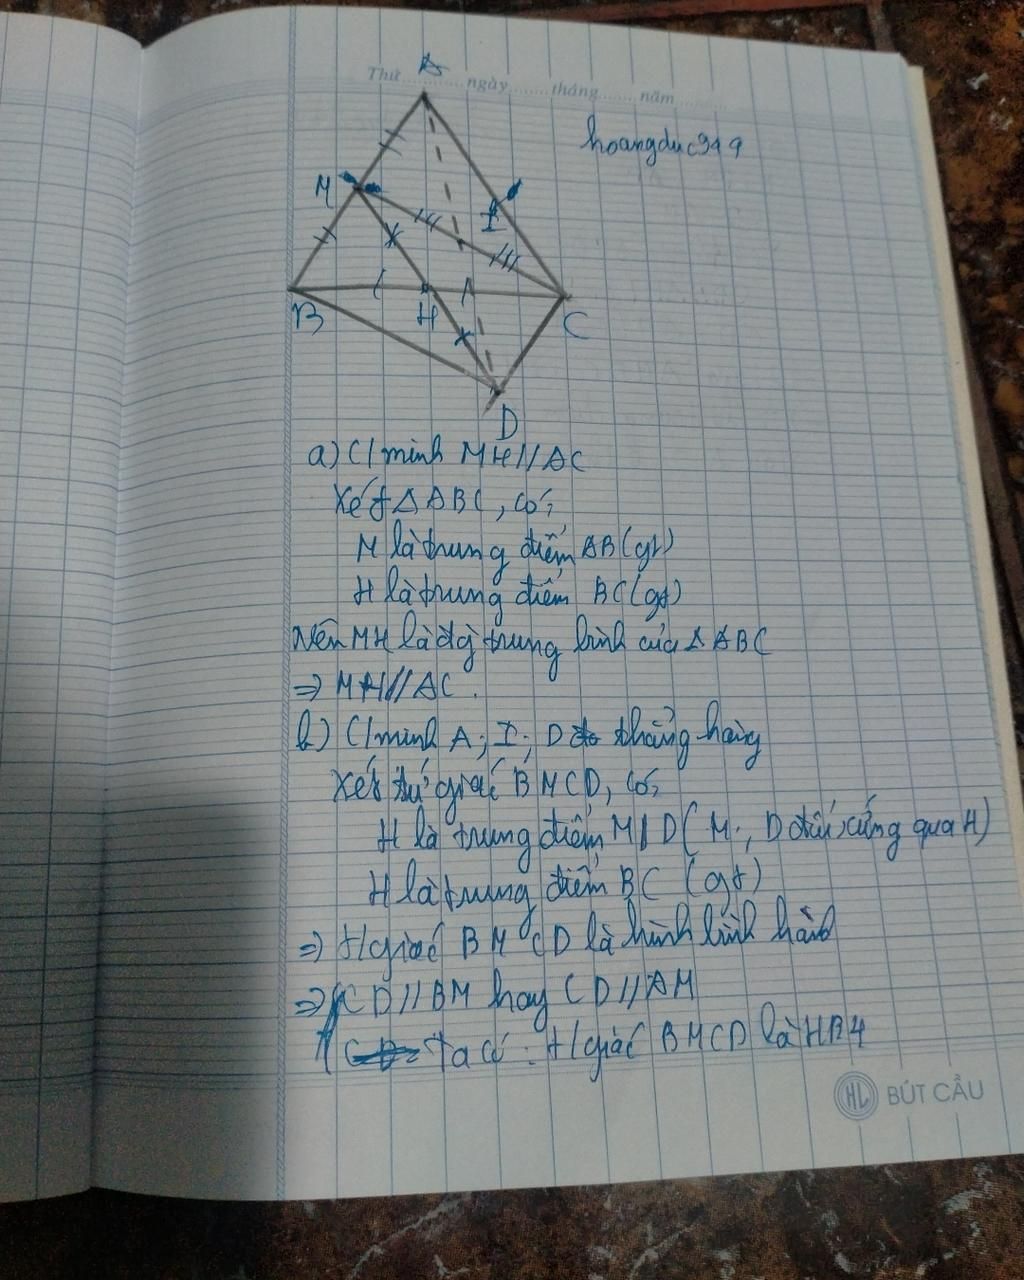 Thứ ........ ngày ........ tháng ........ năm ........
A
hoangduc919
M
I
B
H
C
D
a) C/minh MH//AC
Xét △ABC, có:
M là trung điểm AB(gt)
H là trung điểm BC(gt)
Nên MH là đg trung bình của △ABC
=> MH//AC.
b) C/minh A; I; D thẳng hàng
Xét tứ giác BMCD, có:
H là trung điểm MD(M; D đối xứng qua H)
H là trung điểm BC (gt)
=> T/giác BMCD là hình bình hành
=> CD//BM hay CD//AM
Ta có: T/giác BMCD là HBH
HL BÚT CẦU